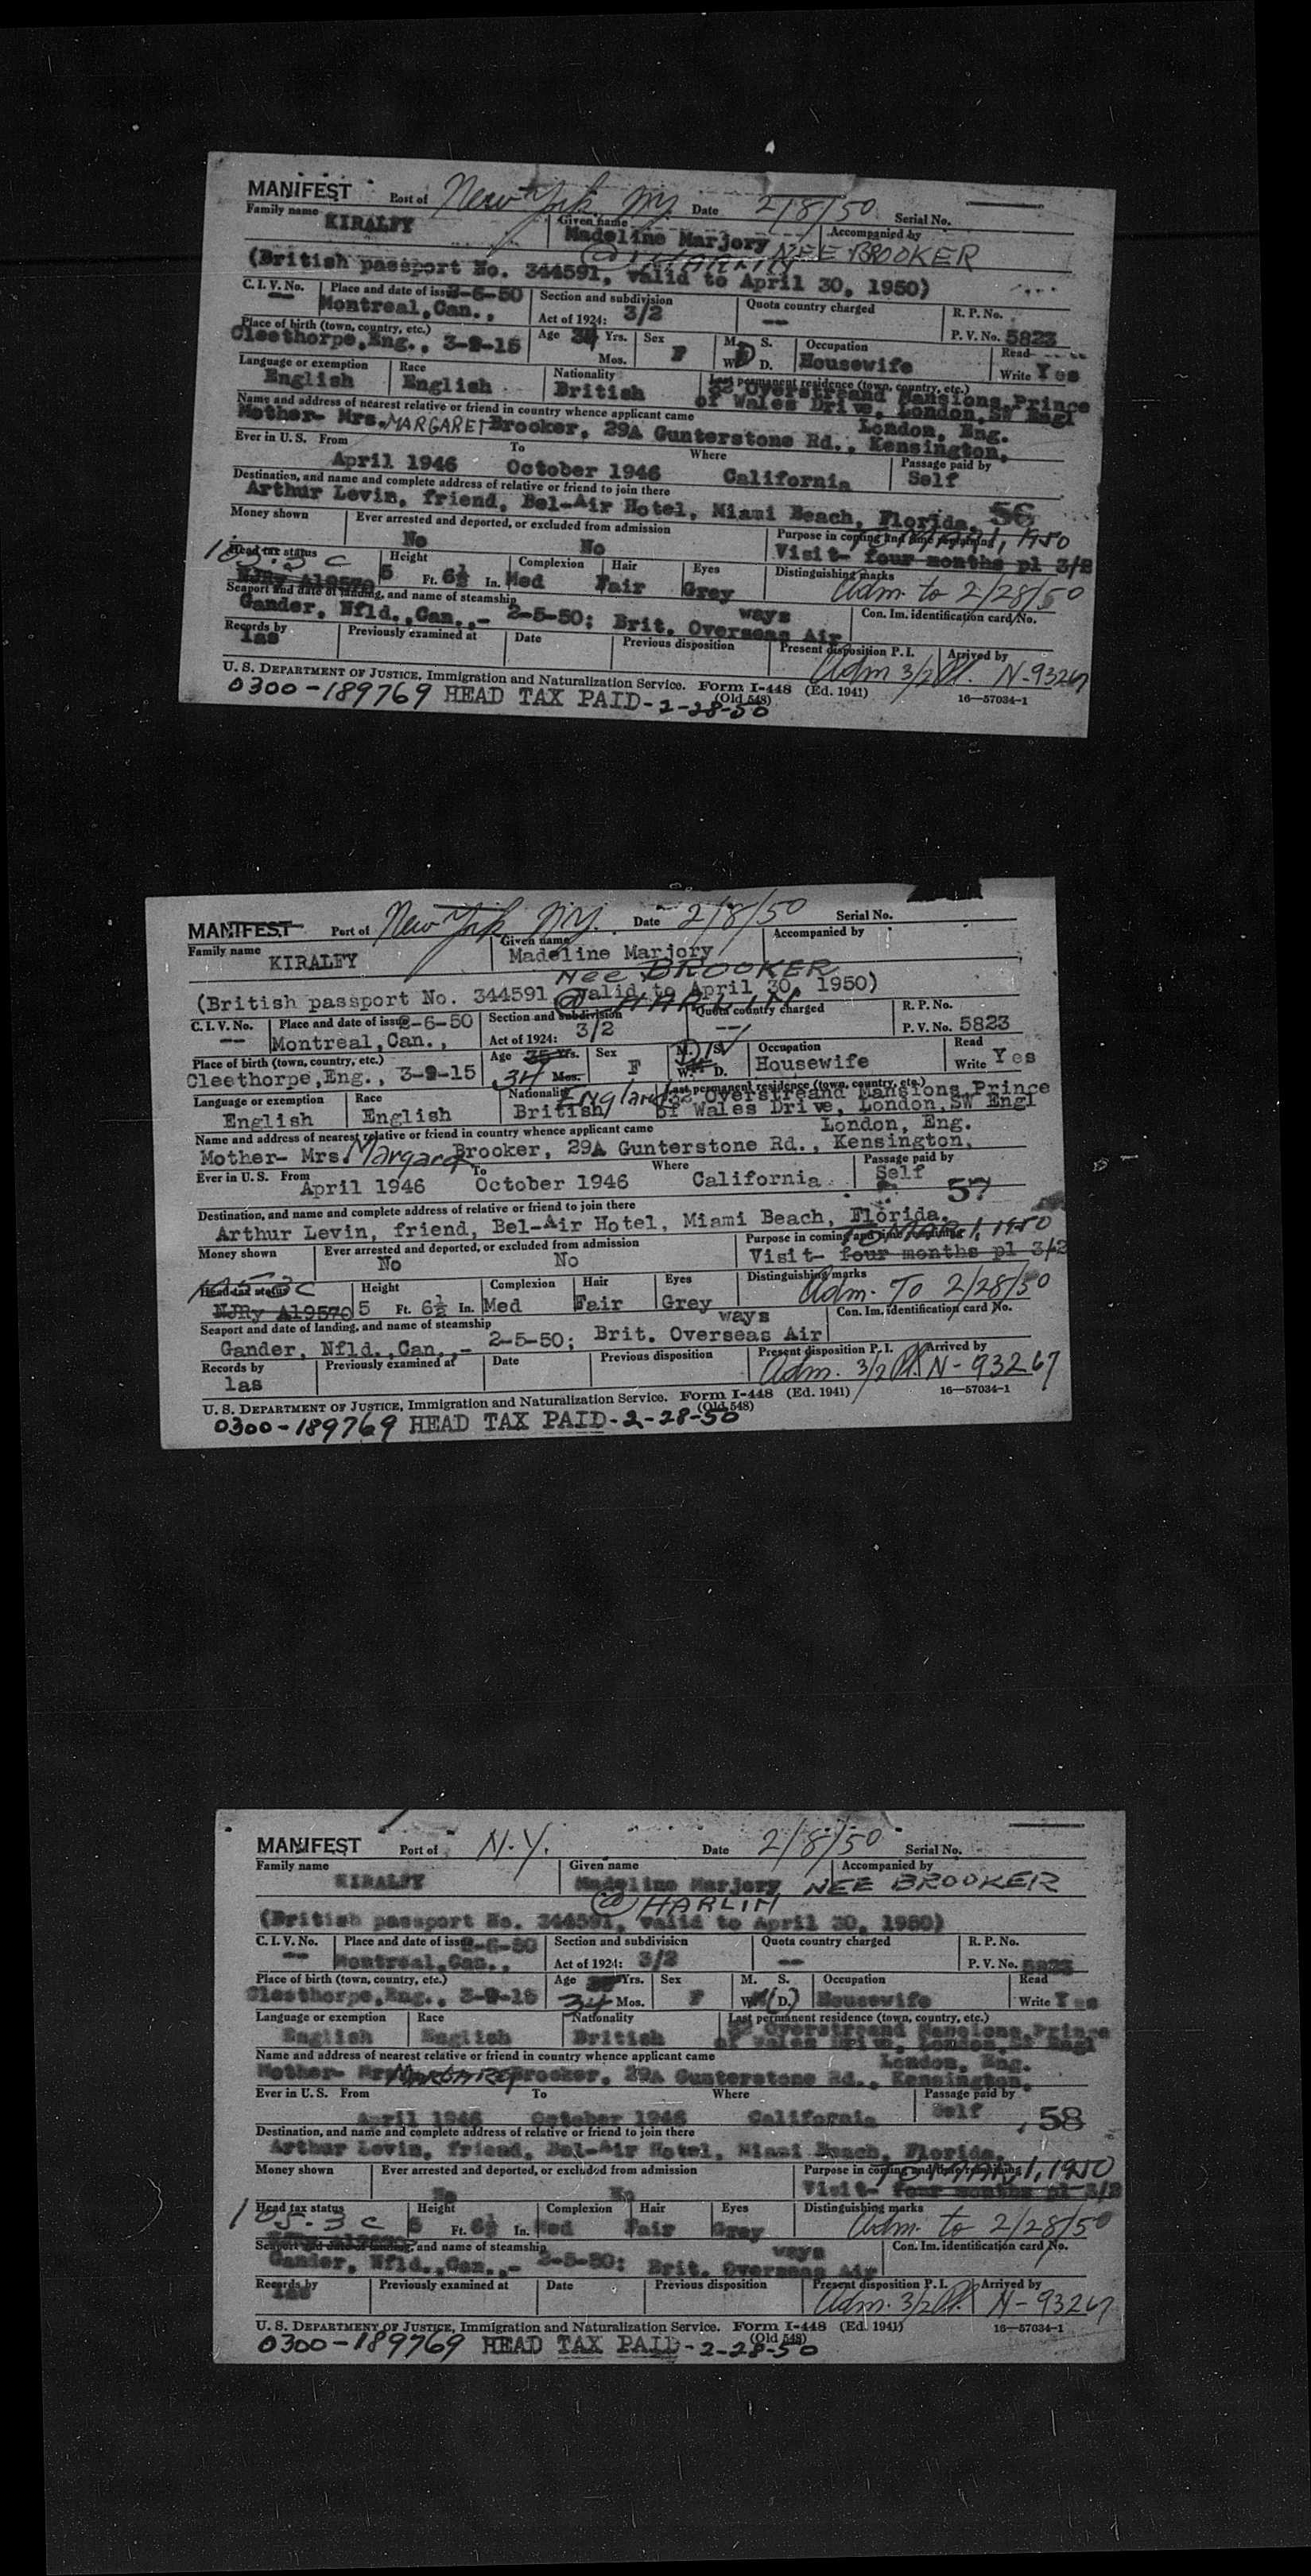 MANIFEST Port of New York NY. Date 2/8/50 Serial No.
Family name KIRALFY Given name Madeline Marjory NEE BROOKER Accompanied by
@ HARLIN
(British passport No. 344591, valid to April 30, 1950)
C. I. V. No. -- Place and date of issue 2-6-50 Montreal,Can., Section and subdivision Act of 1924: 3/2 Quota country charged -- R. P. No. P. V. No. 5823
Place of birth (town, country, etc.) Cleethorpe,Eng., 3-9-15 Age 34 Yrs. Mos. Sex F M. S. W. D. Occupation Housewife Read Write Yes
Language or exemption English Race English Nationality British Last permanent residence (town, country, etc.) 32 Overstreand Mansions,Prince
of Wales Drive, London,SW Engl
Name and address of nearest relative or friend in country whence applicant came London, Eng.
Mother- Mrs. MARGARET Brooker, 29A Gunterstone Rd., Kensington,
Ever in U. S. From April 1946 To October 1946 Where California Passage paid by Self
Destination, and name and complete address of relative or friend to join there 56
Arthur Levin, friend, Bel-Air Hotel, Miami Beach, Florida.
Money shown Ever arrested and deported, or excluded from admission No No Purpose in coming and time remaining TO MAR 1, 1950
Visit- four months pl 3/2
Head tax status 105.3 C NJRy A19570 Height 5 Ft. 6½ In. Complexion Med Hair Fair Eyes Grey Distinguishing marks Adm. to 2/28/50
Seaport and date of landing, and name of steamship ways Con. Im. identification card No.
Gander, Nfld.,Can.,- 2-5-50; Brit. Overseas Air
Records by las Previously examined at Date Previous disposition Present disposition P. I. Adm 3/2 Arrived by N-93267
U. S. DEPARTMENT OF JUSTICE, Immigration and Naturalization Service. Form I-448 (Ed. 1941) (Old 548) 16—57034-1
0300-189769 HEAD TAX PAID-2-28-50
MANIFEST Port of New York NY. Date 2/8/50 Serial No.
Family name KIRALFY Given name Madeline Marjory Accompanied by
Nee BROOKER
(British passport No. 344591, valid to April 30, 1950)
@ HARLIN
C. I. V. No. -- Place and date of issue 2-6-50 Montreal,Can., Section and subdivision Act of 1924: 3/2 Quota country charged -- R. P. No. P. V. No. 5823
Place of birth (town, country, etc.) Cleethorpe,Eng., 3-9-15 Age 35 Yrs. 34 Mos. Sex F M. S. W. D. Occupation Housewife Read Write Yes
Language or exemption English Race English Nationality England British Last permanent residence (town, country, etc.) 32 Overstreand Mansions,Prince
of Wales Drive, London,SW Engl
Name and address of nearest relative or friend in country whence applicant came London, Eng.
Mother- Mrs. Margaret Brooker, 29A Gunterstone Rd., Kensington,
Ever in U. S. From April 1946 To October 1946 Where California Passage paid by Self
Destination, and name and complete address of relative or friend to join there 57
Arthur Levin, friend, Bel-Air Hotel, Miami Beach, Florida.
Money shown Ever arrested and deported, or excluded from admission No No Purpose in coming and time remaining TO MAR 1, 1950
Visit- four months pl 3/2
Head tax status 105.3 C NJRy A19570 Height 5 Ft. 6½ In. Complexion Med Hair Fair Eyes Grey Distinguishing marks Adm. TO 2/28/50
Seaport and date of landing, and name of steamship ways Con. Im. identification card No.
Gander, Nfld.,Can.,- 2-5-50; Brit. Overseas Air
Records by las Previously examined at Date Previous disposition Present disposition P. I. Adm. 3/2 Arrived by N-93267
U. S. DEPARTMENT OF JUSTICE, Immigration and Naturalization Service. Form I-448 (Ed. 1941) (Old 548) 16—57034-1
0300-189769 HEAD TAX PAID-2-28-50
MANIFEST Port of N.Y. Date 2/8/50 Serial No.
Family name KIRALFY Given name Madeline Marjory NEE BROOKER Accompanied by
@ HARLIN
(British passport No. 344591, valid to April 30, 1950)
C. I. V. No. -- Place and date of issue 2-6-50 Montreal,Can., Section and subdivision Act of 1924: 3/2 Quota country charged -- R. P. No. P. V. No. 5823
Place of birth (town, country, etc.) Cleethorpe,Eng., 3-9-15 Age Yrs. 34 Mos. Sex F M. S. W. D. Occupation Housewife Read Write Yes
Language or exemption English Race English Nationality British Last permanent residence (town, country, etc.) 32 Overstreand Mansions,Prince
of Wales Drive, London,SW Engl
Name and address of nearest relative or friend in country whence applicant came London, Eng.
Mother- Mrs. MARGARET Brooker, 29A Gunterstone Rd., Kensington,
Ever in U. S. From April 1946 To October 1946 Where California Passage paid by Self 58
Destination, and name and complete address of relative or friend to join there
Arthur Levin, friend, Bel-Air Hotel, Miami Beach, Florida.
Money shown Ever arrested and deported, or excluded from admission No No Purpose in coming and time remaining TO MAR 1, 1950
Visit- four months pl 3/2
Head tax status 105.3 C Height 5 Ft. 6½ In. Complexion Med Hair Fair Eyes Grey Distinguishing marks Adm. to 2/28/50
Seaport and date of landing, and name of steamship ways Con. Im. identification card No.
Gander, Nfld.,Can.,- 2-5-50; Brit. Overseas Air
Records by las Previously examined at Date Previous disposition Present disposition P. I. Adm. 3/2 Arrived by N-93267
U. S. DEPARTMENT OF JUSTICE, Immigration and Naturalization Service. Form I-448 (Ed. 1941) (Old 548) 16—57034-1
0300-189769 HEAD TAX PAID-2-28-50